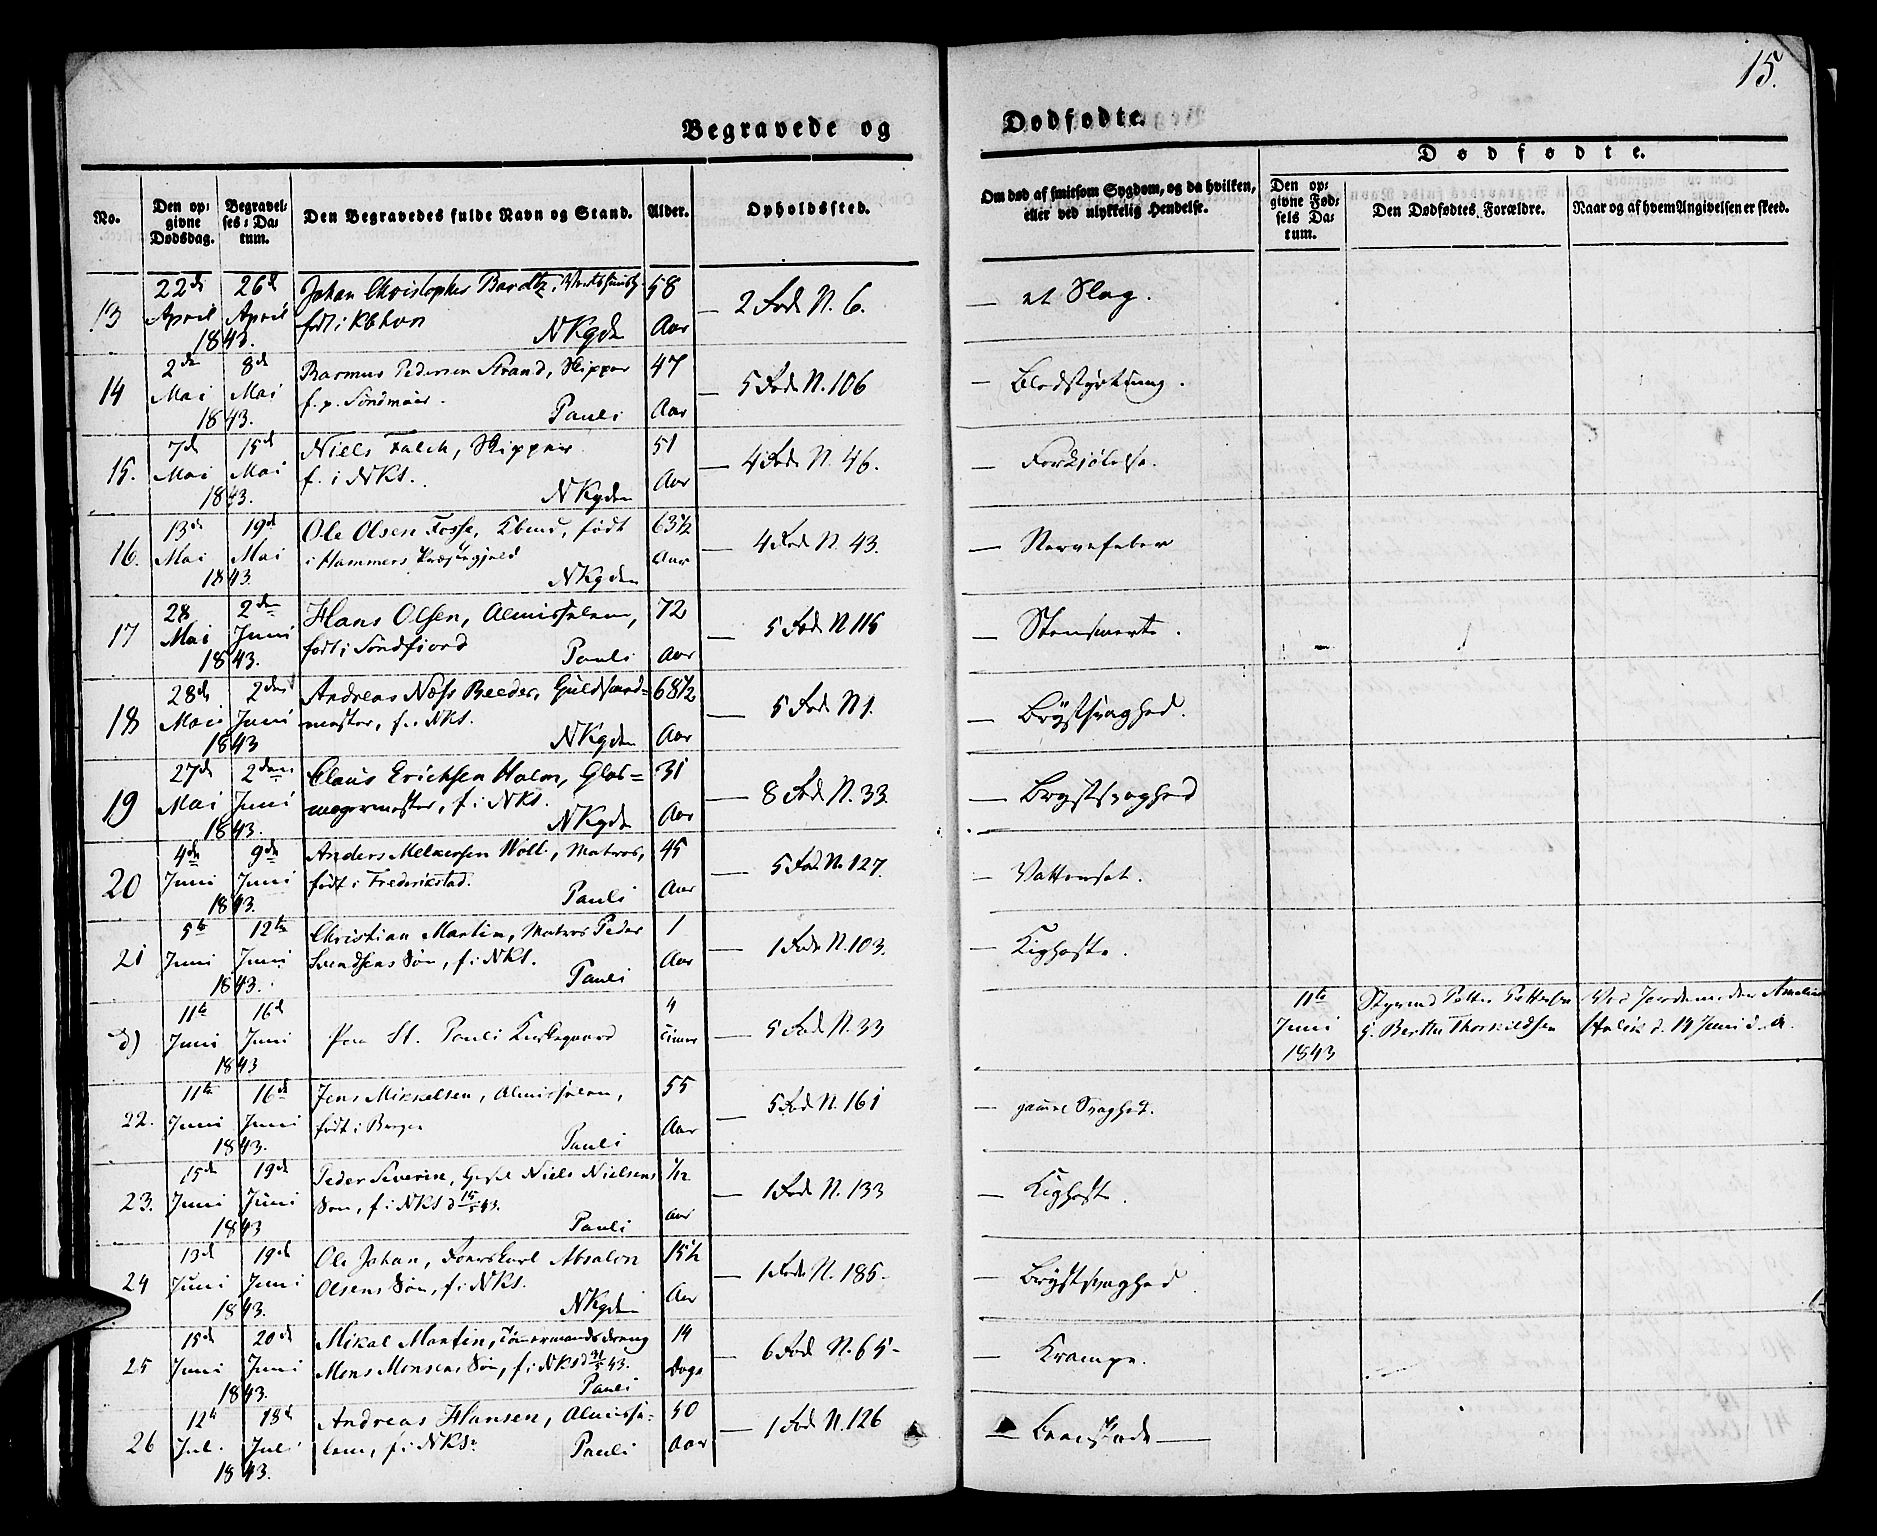 15.
Begravede og Dødfødte.
Dødfødte.
No.
Den opgivne Dødsdag.
Begravelses-Datum.
Den Begravedes fulde Navn og Stand.
Alder.
Opholdssted.
Om død af smitsom Sygdom, og da hvilken, eller ved ulykkelig Hendelse.
Den opgivne Fødsels Datum.
Den Dødfødtes Forældre.
Naar og af hvem Angivelsen er skeed.
13 22de April 1843. 26de April Johan Christopher Bardtz,
født i Kbhvn NKgden 58 Aar — 2 Rode N. 6. — et Slag.
14 2den Mai 1843. 8de Mai Rasmus Pedersen Strand, Skipper
f. p. Søndmøer. Pauli 47 Aar — 5 Rode N. 106 — Blodstyrtning.
15. 7de Mai 1843. 15de Mai Niels Falch, Skipper
f. i NKS. NKgden 51 Aar — 4 Rode N. 46. — Forkjølelse.
16. 13de Mai 1843. 19de Mai Ole Olsen Fosse, født
i Hammers Præstegjeld NKgden 63½ Aar — 4 Rode N. 43. — Nervefeber
17 28 Mai 1843. 2den Juni Hans Olsen, Almisselem,
født i Søndfiord Pauli 72 Aar — 5 Rode N 115 — Stensmerte.
18 28de Mai 1843 2den Juni Andreas Næss Beeder, Guldsmed=
mester, f. i NKS. NKgden 68½ Aar — 5 Rode N 1. — Brystsvaghed.
19 27de Mai 1843. 2den Juni Claus Erichsen Holm, Glas=
magermester, f. i NKS. NKgde 31 Aar — 8 Rode N. 33. — Brystsvaghed
20 4de Juni 1843. 9de Juni Anders Melkersen Woll, Matros,
født i Frederikstad. Pauli 45 Aar — 5 Rode N. 127. — Vattersot.
21 5te Juni 1843. 12te Juni Christian Martin, Matros Peder
Svendsens Søn, f. i NKS. Pauli 1 Aar — 1 Rode N. 103. — Kighoste.
d) 11te Juni 1843 16de Juni Paa St. Pauli Kirkegaard 4 Timer — 5 Rode N. 33 11te Juni 1843 Styrmd Petter Pettersen
g. Berthe Thorkildsen Ved Jordemoder Amalia
d. 14 Juni d. A.
22. 11te Juni 1843. 16de Juni Jens Mikkelsen, Almisselem,
født i Bergen Pauli 55 Aar — 5 Rode N. 161 — gammel Svaghed.
23. 15de Juni 1843 19de Juni Peder Severin, Niels Nielsens
Søn, f. i NKS d 15/5 43. Pauli 1/12 Aar — 1 Rode N. 133 — Kighoste.
24 13de Juni 1843. 19de Juni Ole Johan, Absalon
Olsens Søn, f. i NKS. NKgden 15½ Aar — 1 Rode N. 185. — Brystsvaghed.
25 15de Juni 1843. 20de Juni Mikal Martin, Tømmermandsdreng
Mons Monsens Søn, f. i NKS d 31/5 43. Pauli 14 Dage — 6 Rode N. 65- — Krampe.
26 12te Juli 1843. 18de Juli Andreas Hansen, Almisse=
lem, f. i NKS. Pauli 50 Aar — 1 Rode N. 126 —